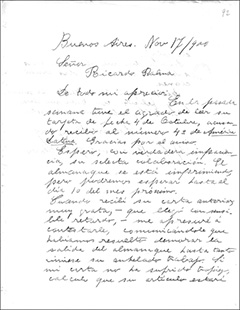 92
Buenos Aires. Nov 17/900
Señor
Ricardo Palma
De todo mi aprecio:
En la pasada
semana tuve el agrado de leer su
tarjeta de fecha 4 de Octubre, acusan
do recibo al número 42 de América
Latina. Gracias por el aviso.
Espero, con verdadera impacien
cia, su selecta colaboración. El
almanaque se está imprimiendo,
pero podremos esperar hasta el
día 10 del mes próximo.
Cuando recibí su carta anterior,
muy grata, - que llegó con sensi
ble retardo, - me apresuré a
contestarle, comunicándole que
habíamos resuelto demorar la
salida del almanaque hasta tanto
viniese su anhelado trabajo. Si
mi carta no ha sufrido
calculo que su artículo estará